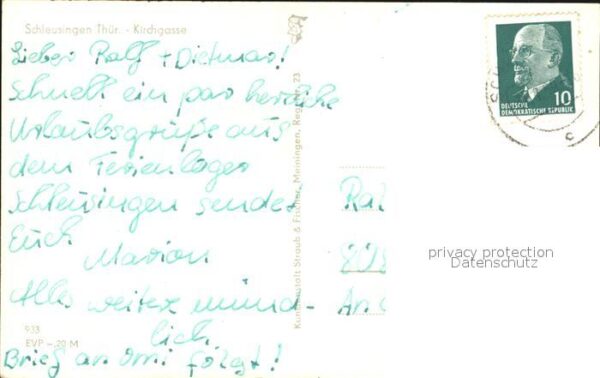 Schleusingen Thür. - Kirchgasse
Lieber Ralf + Dietmar!
Schnell ein par herzliche
Urlaubsgrüße aus
dem Ferienlager
Schleusingen sendet
Euch
Marion
Alles weitere münd-
lich.
Brief an Omi folgt!
933
EVP -,20 M
Kunstanstalt Straub & Fischer, Meiningen, Reg.-Nr. 23
DEUTSCHE
DEMOKRATISCHE REPUBLIK
10
privacy protection
Datenschutz